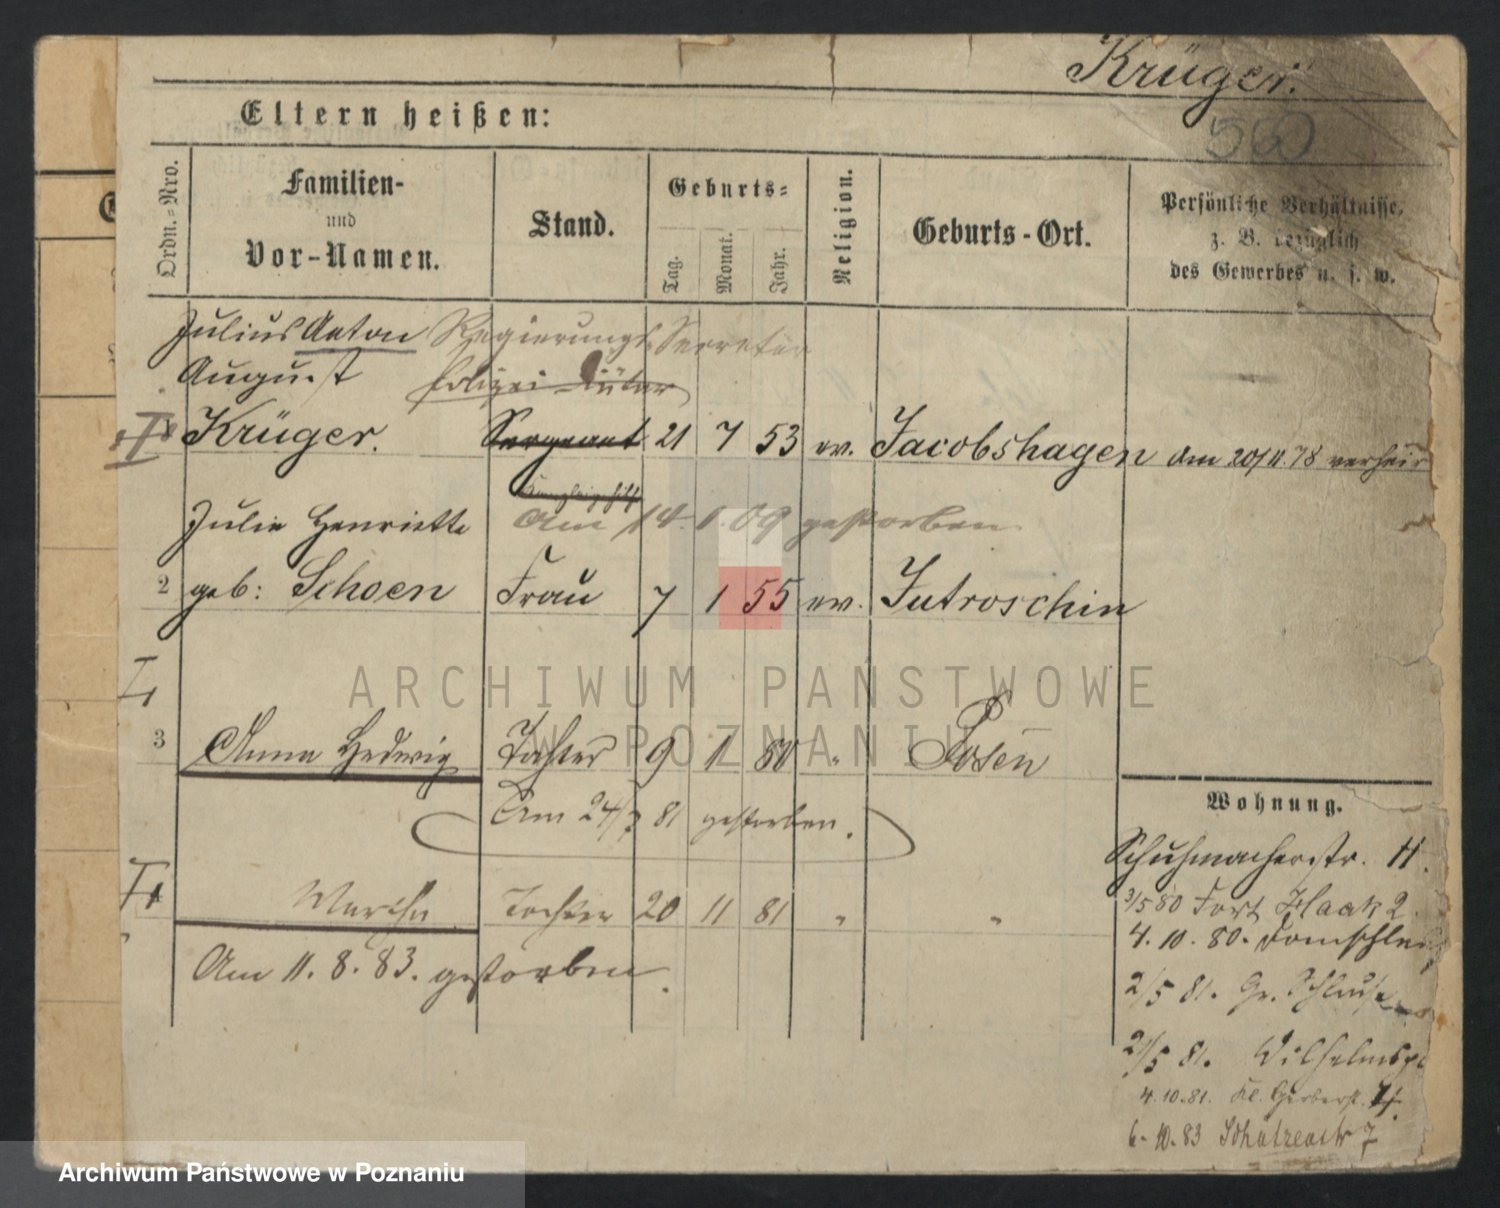 Krüger.
560
Eltern heißen:
Ordn.=Nro.
Familien-
und
Vor-Namen.
Stand.
Geburts=
Tag.
Monat.
Jahr.
Religion.
Geburts-Ort.
Persönliche Verhältnisse,
z. B. bezüglich
des Gewerbes u. s. w.
Julius Anton Regierungs Secretair
August
Krüger. Sergeant 21 7 53 ev. Jacobshagen am 20/11.78 verheir
Julie Henriette am 14. 1. 09 gestorben
2 geb: Schoen Frau 7 1 55 ev. Jutroschin
3 Anna Hedwig Tochter 9 11 80 " Posen
Am 24/7 81 gestorben.
Martha Tochter 20 11 81 " "
Am 11. 8. 83. gestorben.
Wohnung.
Schuhmacherstr. 11.
3/5 80 Fort Haak 2.
4. 10. 80. Domschleu
2/5 81. Gr. Schleuse
21/5 81. Wilhelmspl
4.10.81. Kl. Gerberst. 14.
6. 10. 83 Schützenstr 7
ARCHIWUM PAŃSTWOWE
W POZNANIU
Archiwum Państwowe w Poznaniu